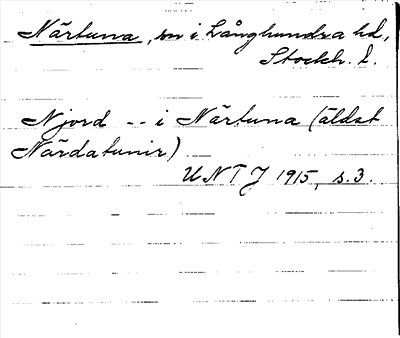 Närtuna, sn i Långhundra hd,
Stockh. l.
Njord -- i Närtuna (äldst
Närdatunir)
UNTJ 1915, s. 3.